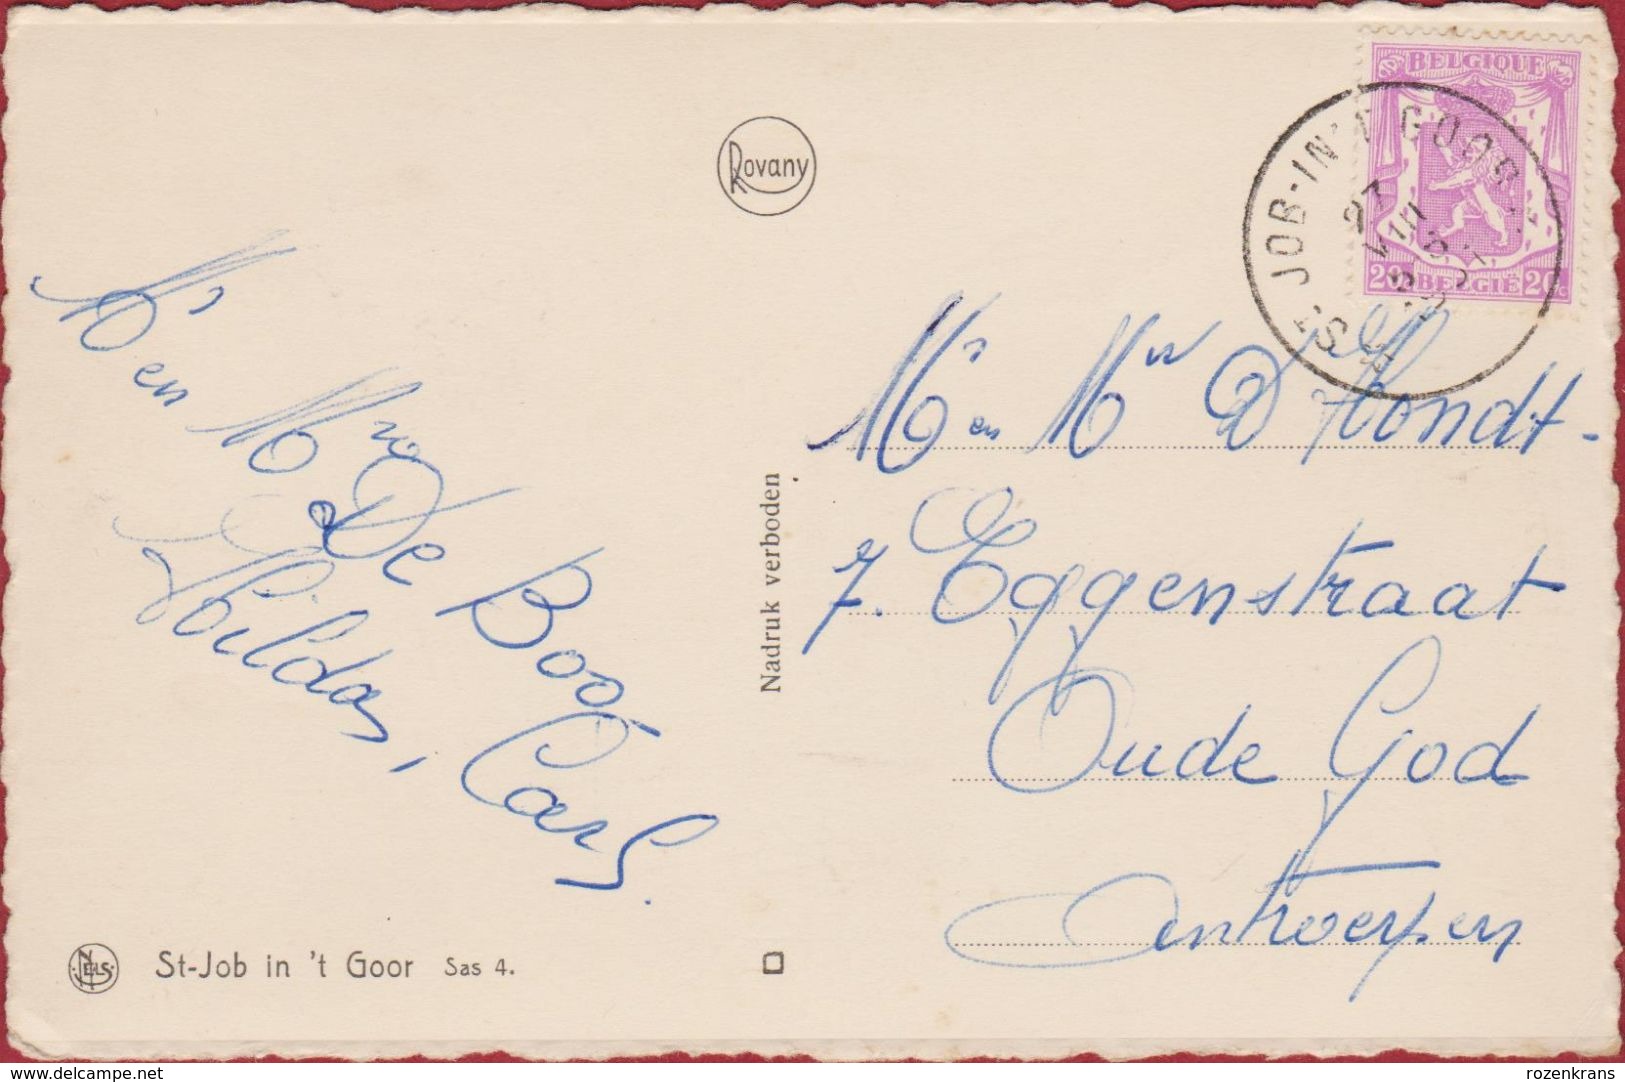 Rovany
BELGIQUE
20c BELGIË 20c
ST. JOB-IN'T GOOR
VIII
Mr en Mvro
De Boo
Hilda, Carl.
Nadruk verboden
Mr en Mw D'Hondt-
7. Eggenstraat
Oude God
Antwerpen
NELS
St-Job in 't Goor Sas 4.
delcampe.net
rozenkrans